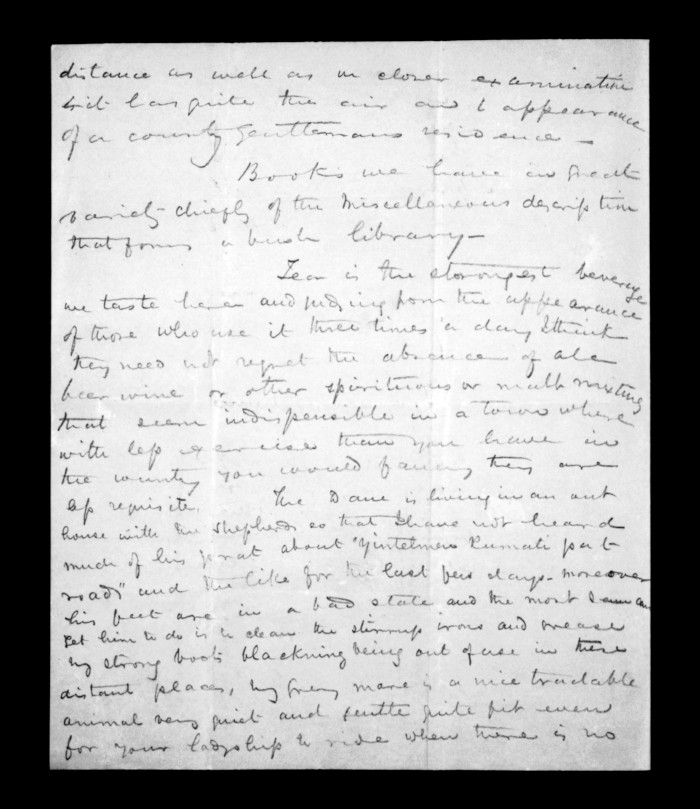 distance as well as on closer examination
& it has quite the air and appearance
of a country gentlemans residence –
Books we have in great
variety chiefly of the Miscellaneous description
that forms a bush library –
Tea is the strongest beverage
we taste here and judging from the appearance
of those who use it three times a day I think
they need not regret the absence of ale
beer wine or other spirituous or malt mixture
that seem indispensible in a town where
with less exercise than you have in
the country you would fancy they are
less requisite. The Dane is living in an out
house with the shepherds so that I have not heard
much of his prat about "Yintelmens Rumati pat
roads" and the like for the last few days – moreover
his feet are in a bad state and the most I can
get him to do is to clean the stirrup irons and grease
my strong boots blackning being out of use in these
distant places, My grey mare is a nice tractable
animal very quiet and gentle quite fit even
for your ladyship to ride when there is no